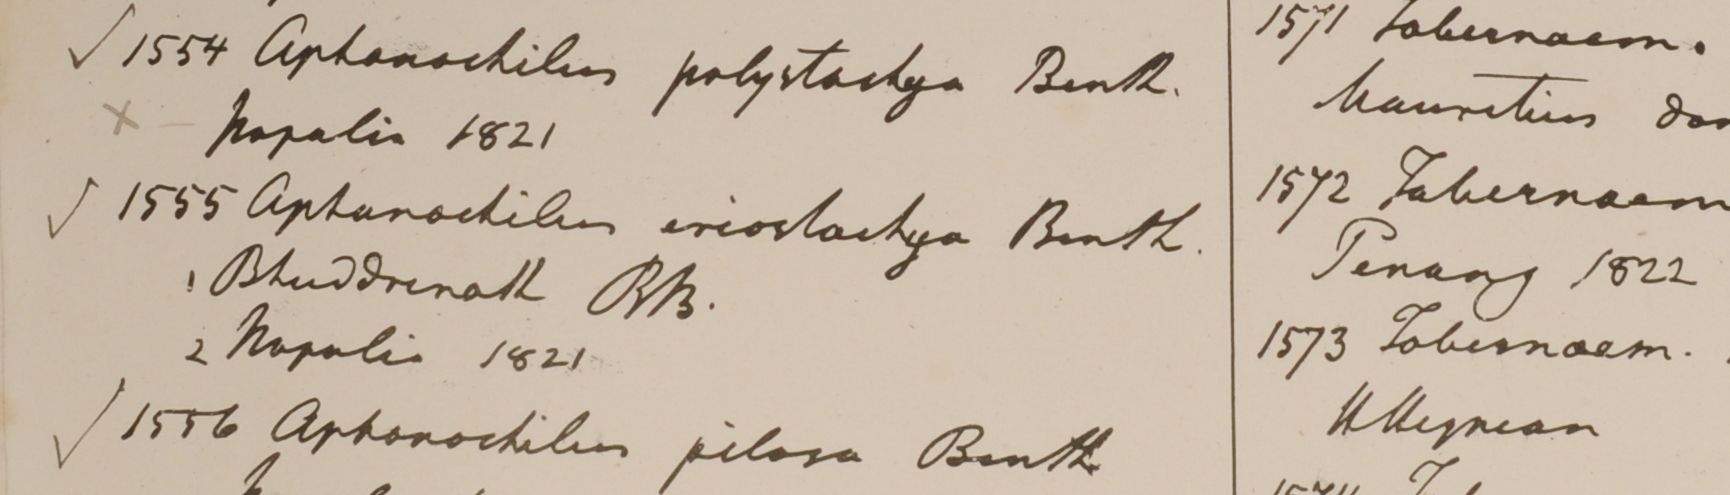 ✓ 1554 Aphanochilus polystachya Benth.
× – Napalia 1821
✓ 1555 Aphanochilus eriostachya Benth.
1 Bhuddrenath RB.
2 Napalia 1821
✓ 1556 Aphanochilus pilosa Benth.
1571 Tabernaem.
Mauritius
1572 Tabernaem
Penang 1822
1573 Tabernaem.